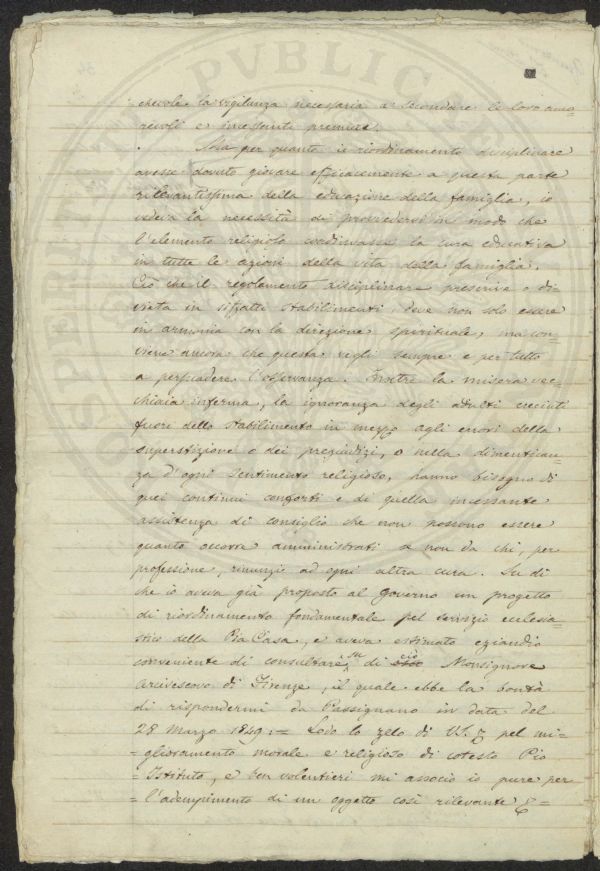 chevole la vigilanza necessaria a secondare le loro amo-
revoli e incessanti premure.
Ma per quanto il riordinamento disciplinare
avesse dovuto giovare efficacemente a questa parte
rilevantissima della educazione della famiglia, io
vedeva la necessità di provvedersi in modo che
l'elemento religioso coordinasse la cura educativa
in tutte le azioni della vita della famiglia.
Ciò che il regolamento disciplinare prescrive o di-
vieta in siffatti Stabilimenti, deve non solo essere
in armonia con la direzione spirituale, ma con-
viene ancora che questa vegli sempre e per tutto
a persuadere l'osservanza. Inoltre la misera vec-
chiaia inferma, la ignoranza degli adulti cresciuti
fuori dello Stabilimento in mezzo agli errori della
superstizione o dei pregiudizj, o nella dimentican-
za d'ogni sentimento religioso, hanno bisogno di
quei continui conforti e di quella incessante
assistenza di consiglio che non possono essere
quanto occorre amministrati se non da chi, per
professione, rinunzi ad ogni altra cura. Su di
che io aveva già proposto al Governo un progetto
di riordinamento fondamentale pel servizio ecclesia-
stico della Pia Casa, e aveva estimato eziandio
conveniente di consultare su di ciò Monsignore
Arcivescovo di Firenze, il quale ebbe la bontà
di rispondermi da Passignano in data del
28 Marzo 1849: = Lodo lo zelo di V. S. pel mi-
= glioramento morale e religioso di cotesto Pio
= Istituto, e ben volentieri mi associo io pure per
= l'adempimento di un oggetto così rilevante &=
OSPEDALI
PVBLICAE